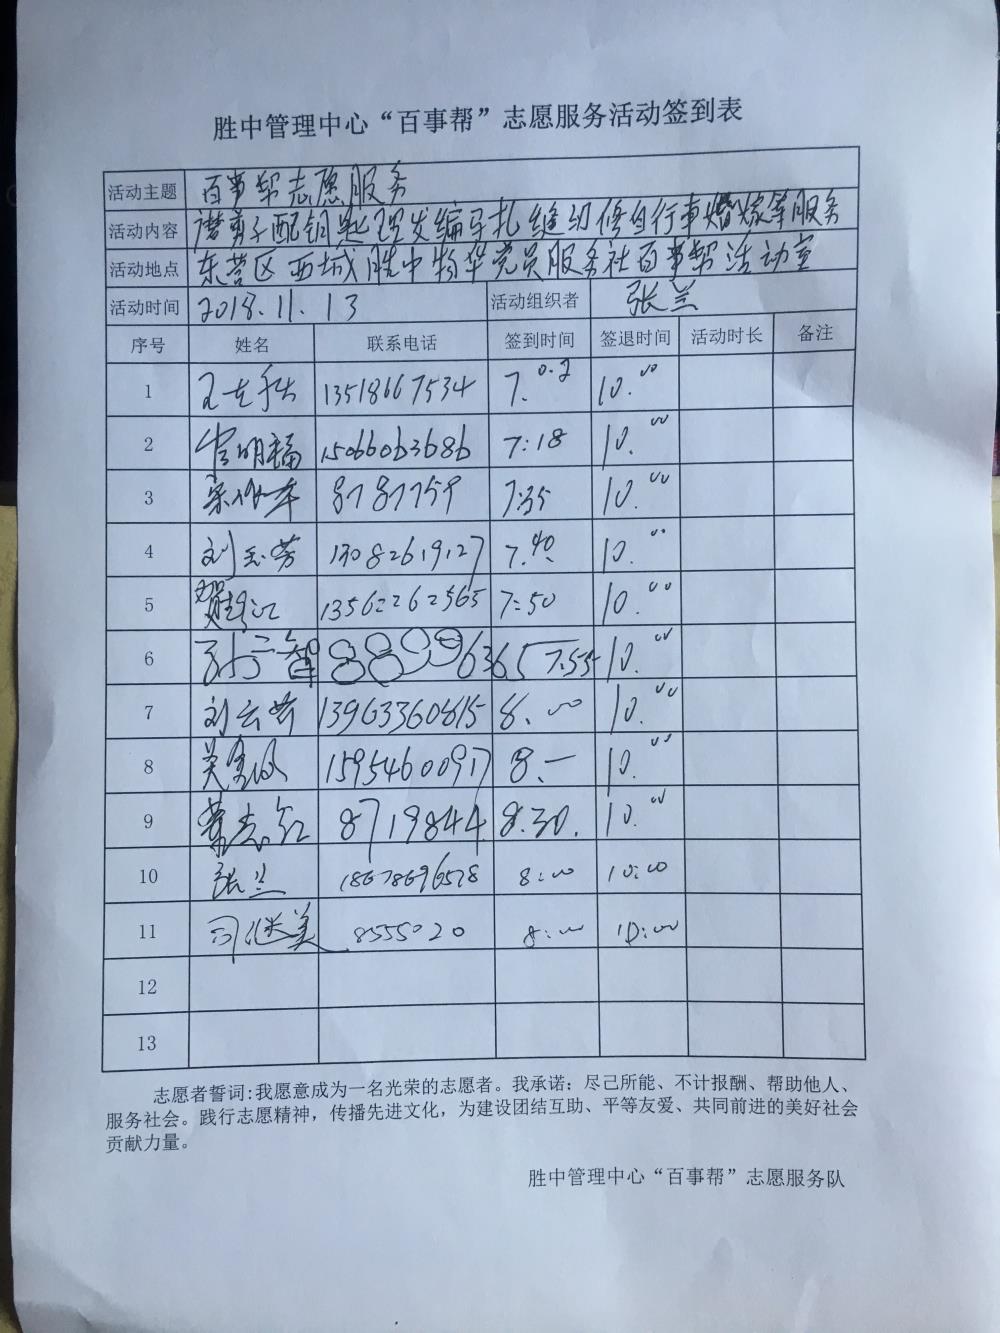 胜中管理中心“百事帮”志愿服务活动签到表
活动主题 百事帮志愿服务
活动内容 磨剪子配钥匙理发编马扎缝纫修自行車婚嫁等服务
活动地点 东营区西城胜中物华党员服务社百事帮活动室
活动时间 2018.11.13 活动组织者 张兰
序号 姓名 联系电话 签到时间 签退时间 活动时长 备注
1 13518667534 7.02 10.00
2 明福 15066063686 7:18 10.00
3 8787759 7:35 10.00
4 刘玉芳 13082619127 7.40 10.00
5 贺 13562262565 7:50 10.00
6 孙云智 88996365 7.55 10.00
7 刘云芳 13963360815 8.00 10.00
8 吴 15954600917 8.一 10.00
9 志红 8719844 8.30. 10.00
10 张兰 18678696578 8:00 10:00
11 司继美 8555020 8:00 10:00
12
13
志愿者誓词:我愿意成为一名光荣的志愿者。我承诺：尽己所能、不计报酬、帮助他人、
服务社会。践行志愿精神，传播先进文化，为建设团结互助、平等友爱、共同前进的美好社会
贡献力量。
胜中管理中心“百事帮”志愿服务队